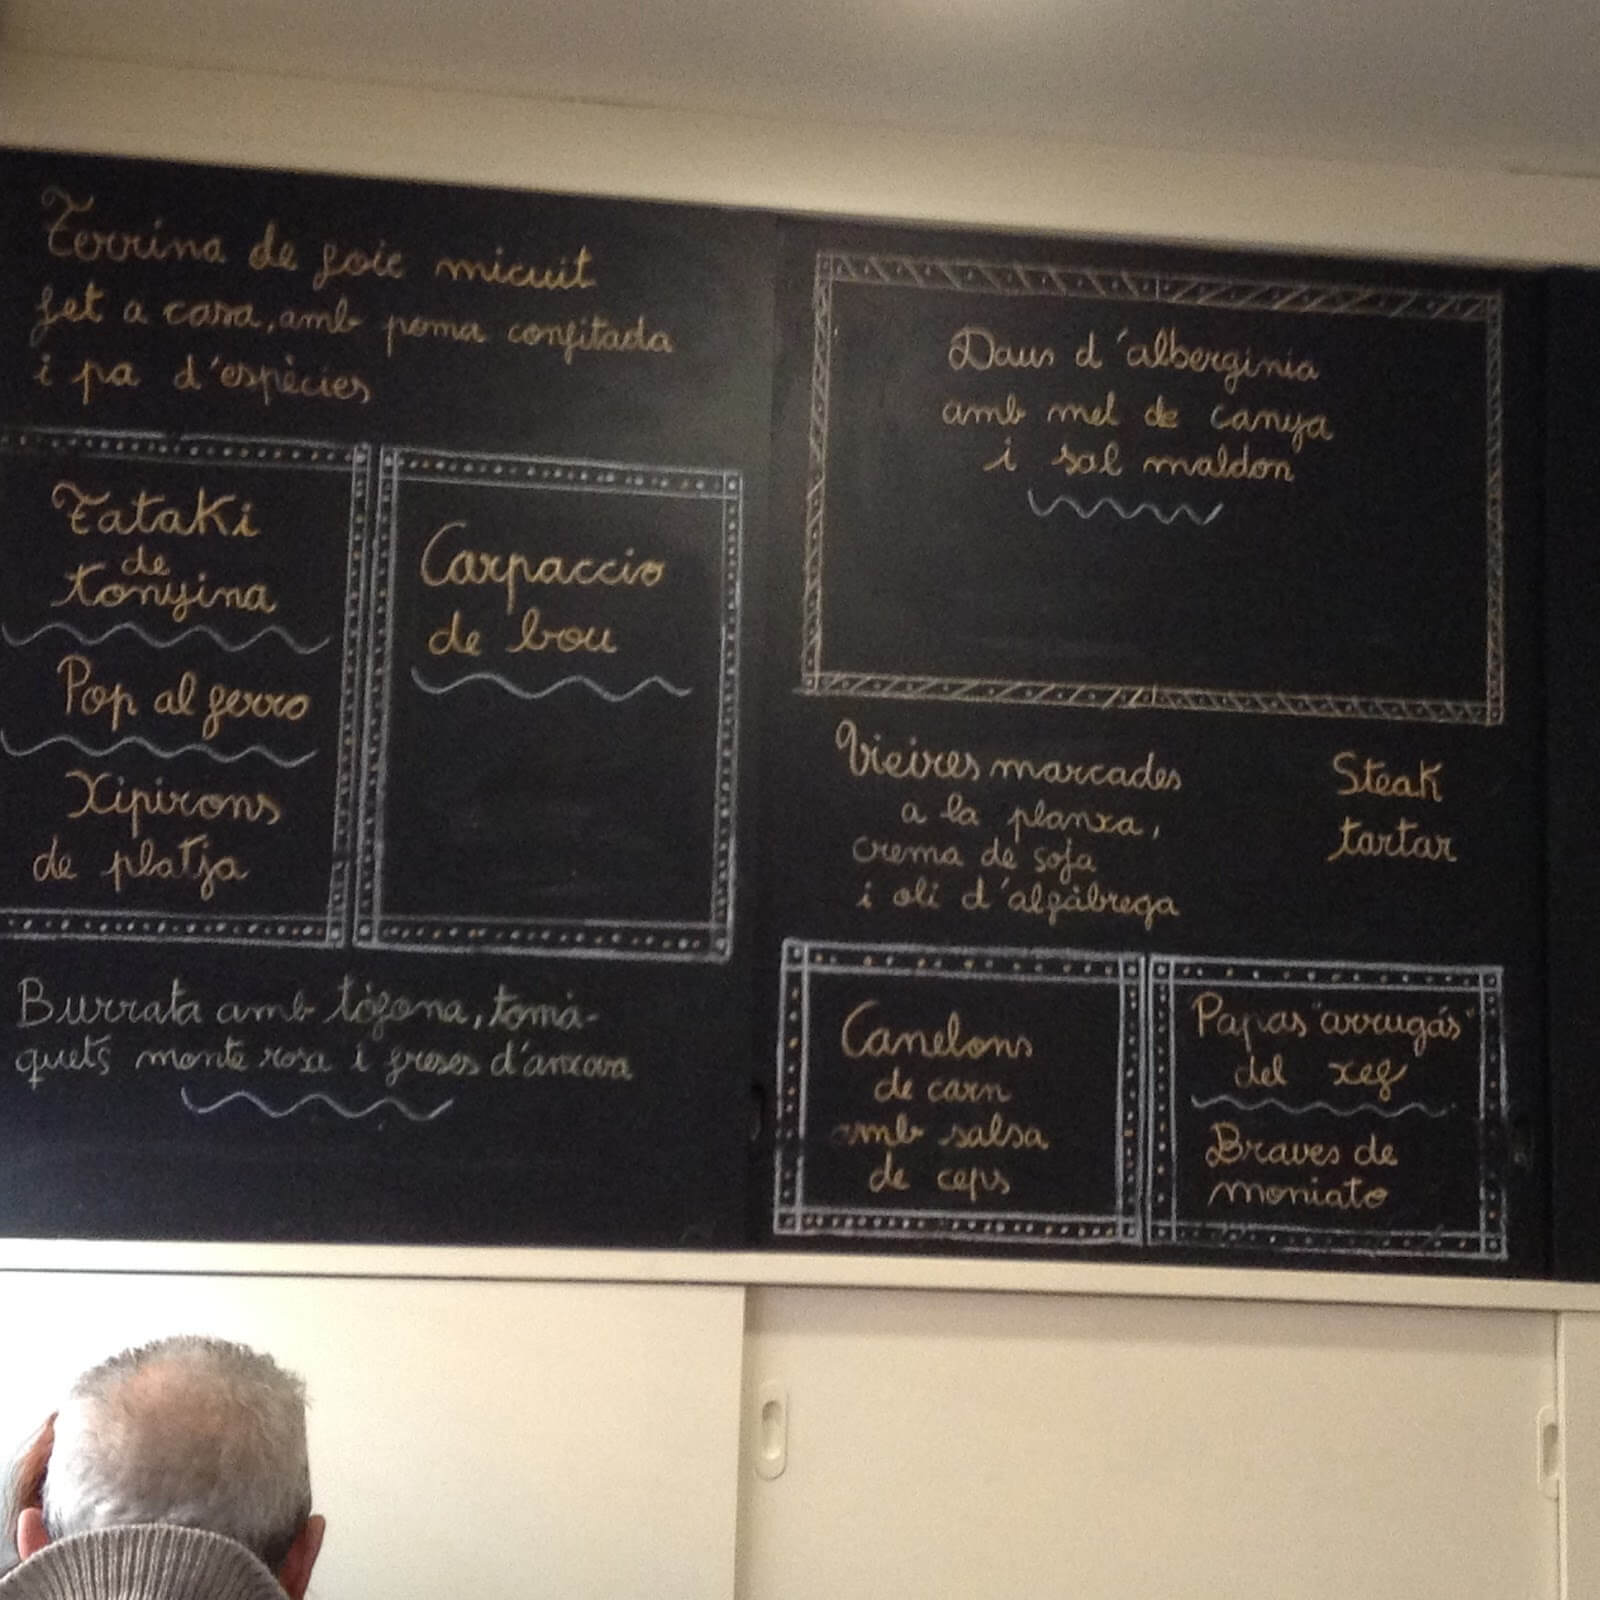 Terrina de foie micuit
fet a casa, amb poma confitada
i pa d'espècies
Tataki
de
tonyina
Pop al ferro
Xipirons
de platja
Carpaccio
de bou
Burrata amb tòfona, tomà-
quets monte rosa i greses d'anxova
Daus d'alberginia
amb mel de canya
i sal maldon
Vieires marcades
a la planxa,
crema de soja
i oli d'alfàbrega
Steak
tartar
Canelons
de carn
amb salsa
de ceps
Papas "arrugás"
del xef
Braves de
moniato